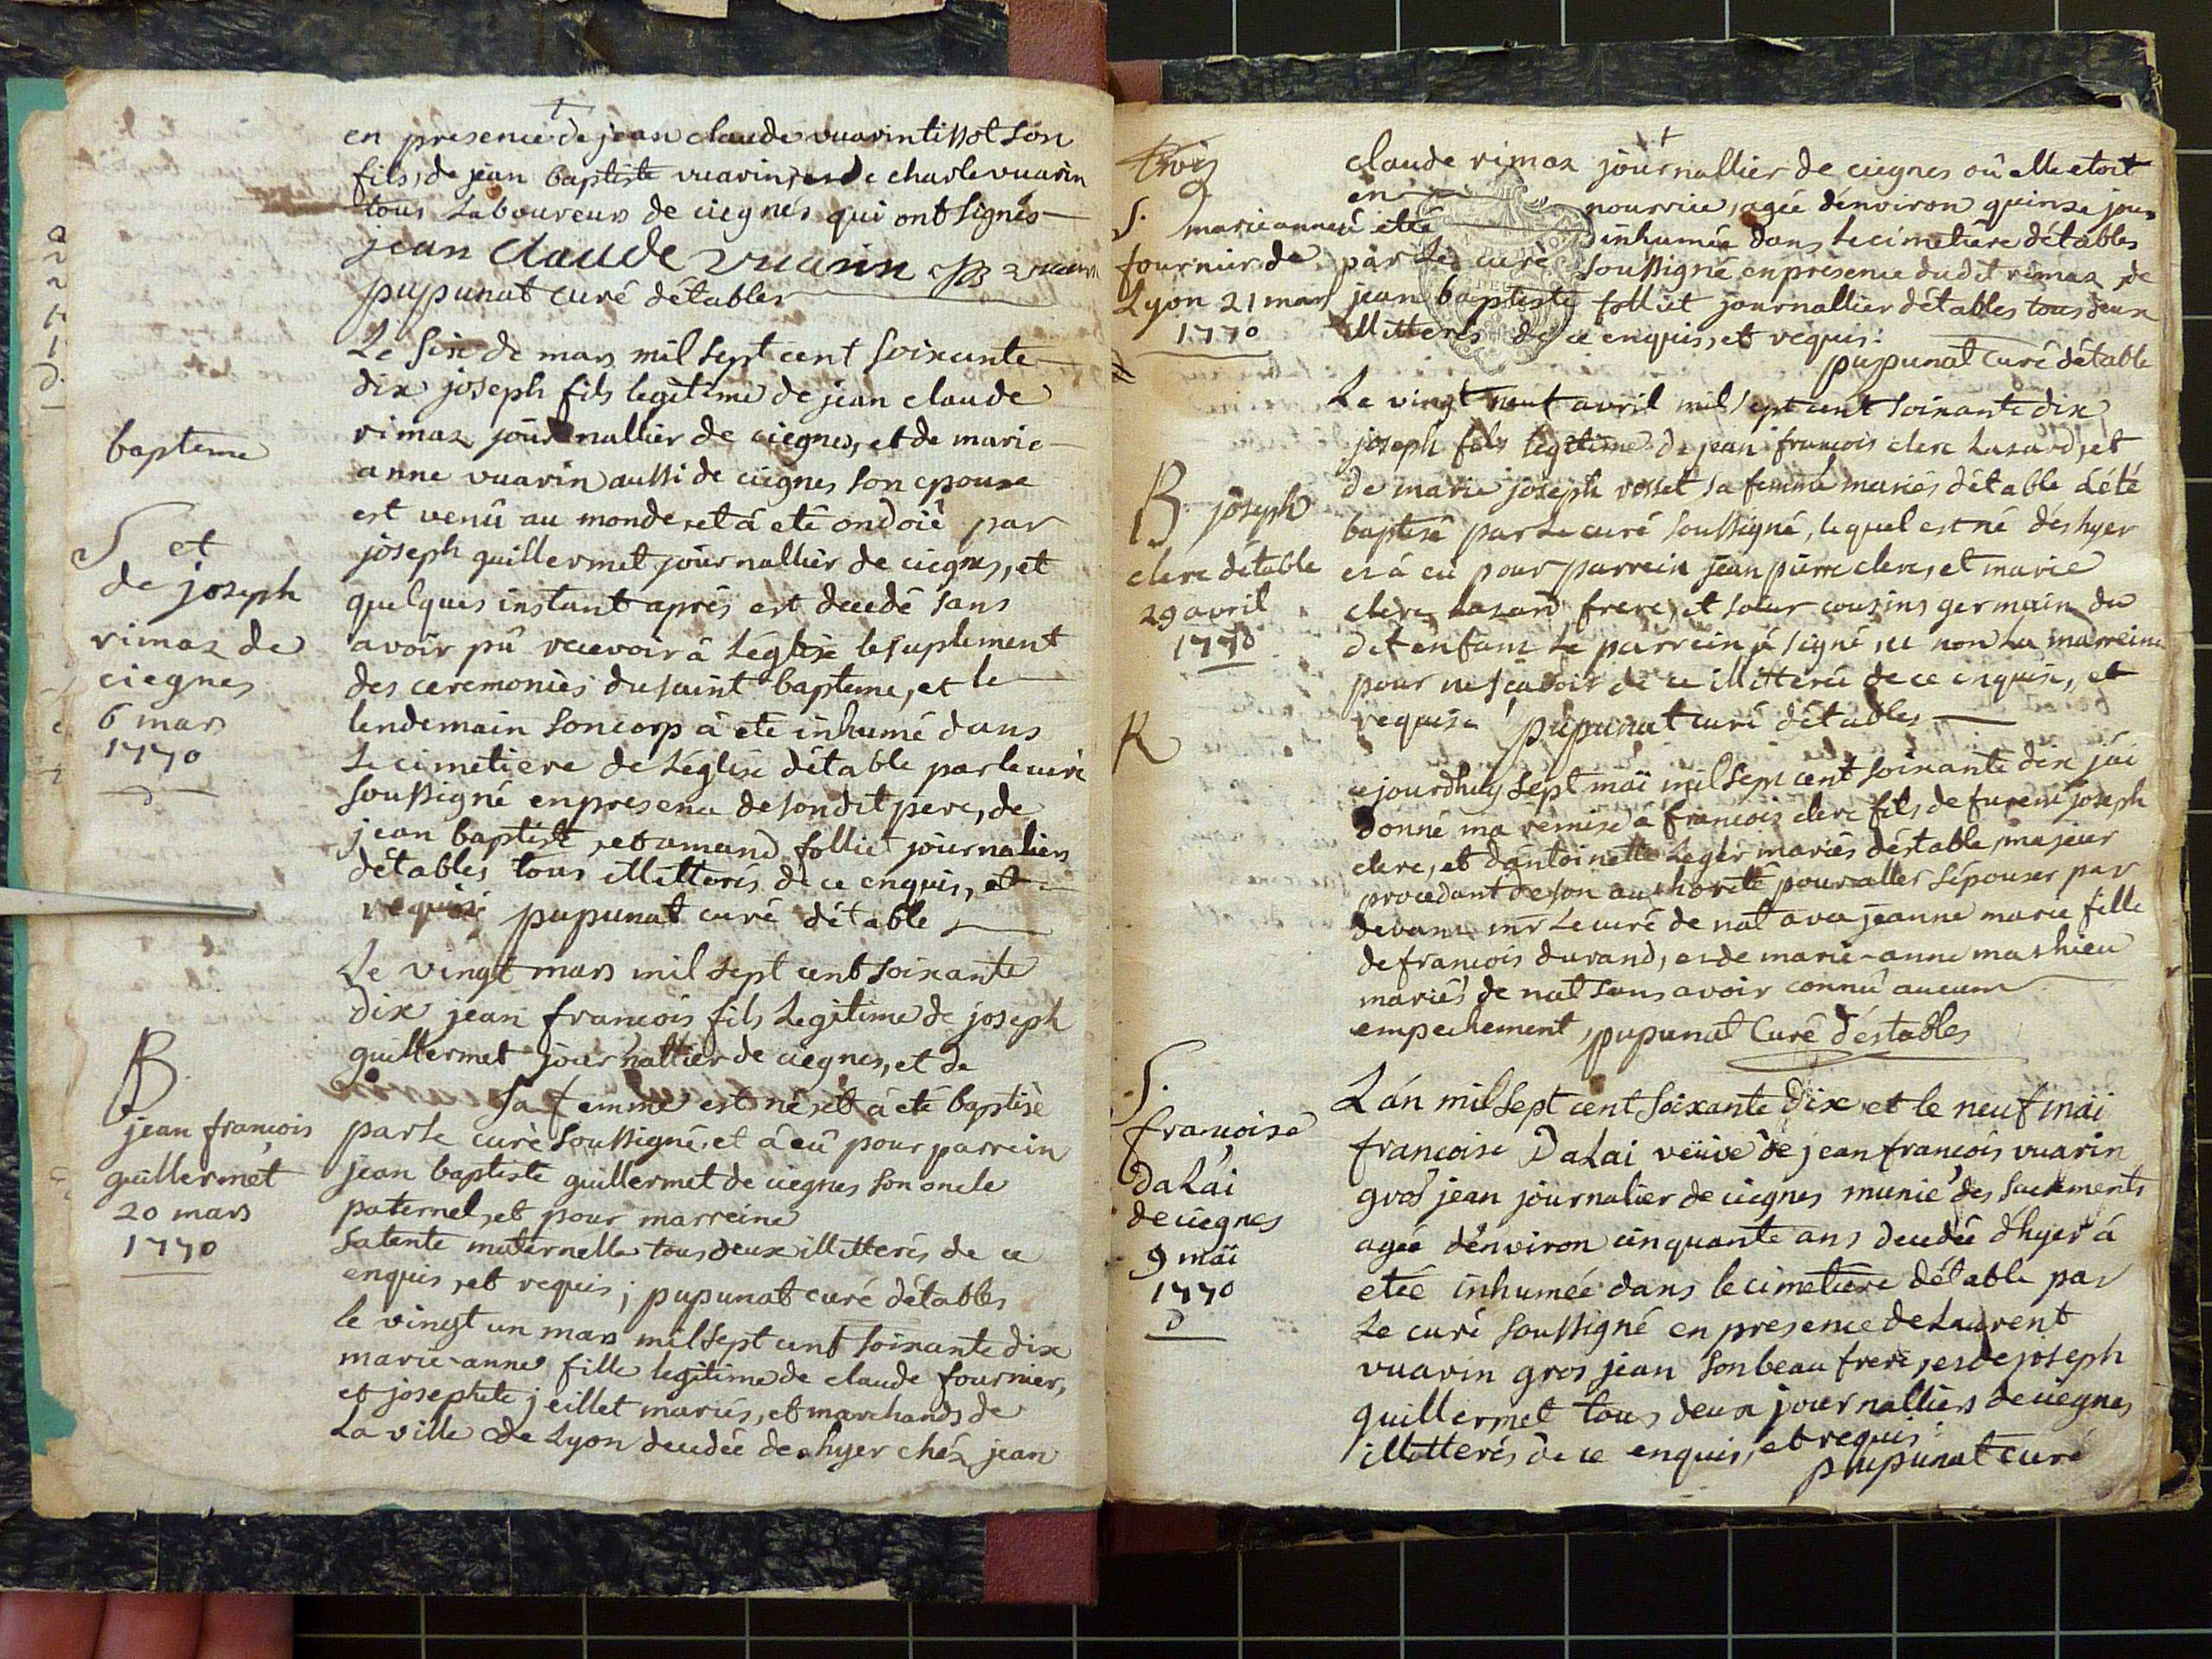 en presence de jean claude vuarin tissot son
fils, de jean baptiste vuarin, et de charle vuarin
tous Laboureurs de ciegnes qui ont signés
jean claude vuarin JB vuarin
pupunat curé détables
bapteme
S et
de joseph
rimaz de
ciegnes
6 mars
1770
Le six de mars mil sept cent soixante
dix joseph fils legitime de jean claude
rimaz journallier de ciegnes, et de marie
anne vuarin aussi de ciegnes son epouse
est venû au monde, et à eté ondoié par
joseph guillermet journallier de ciegnes, et
quelques instant aprés est decedé sans
avoir pû recevoir à Léglise le suplement
des ceremonies du saint bapteme, et le
lendemain son corp à eté inhumé dans
Le cimetiere de Léglise détable par le curé
soussigné en presence de son dit pere, de
jean baptiste, et amand folliet journaliers
détables tous illitterés de ce enquis, et
requis pupunat curé détable
B
jean francois
guillermet
20 mars
1770
Le vingt mars mil sept cent soixante
dix jean francois fils Legitime de joseph
guillermet journallier de ciegnes, et de
sa femme est né, et à eté baptisé
par le curé soussigné, et à eû pour parrein
jean baptiste guillermet de ciegnes son oncle
paternel, et pour marreine
sa tente maternelle tous deux illitterés de ce
enquis, et requis ; pupunat curé détables
le vingt un mars mil sept cent soixante dix
marie-anne fille legitime de claude fournier,
et josephete jeillet mariés, et marchands de
La ville de Lyon decedée des hyer chéz jean
trois
S. marie anne
fournier de
Lyon 21 mars
1770
claude rimaz journallier de ciegnes oû elle etoit
en nourrice, agée d'environ quinze jours
à etée inhumée dans Le cimetiere détables
par Le curé soussigné en présence dudit rimaz, de
jean baptiste folliet journallier détables tous deux
illitterés de ce enquis, et requis :
pupunat curé détable
B joseph
clerc détable
29 avril
1770
Le vingt neuf avril mil sept cent soixante dix
joseph fils légitime de jean francois clerc Lazard, et
de marie joseph rosset sa femme mariés détable à été
baptisé par Le curé soussigné, lequel est né dés hyer
et à eu pour parrein jean pierre clerc, et marie
clerc Lazard frere, et soeur cousins germain du
dit enfant Le parrein à signé, et non La marreine
pour ne sçavoir de ce illitterée de ce enquise, et
requise pupunat curé détables
R
cejourdhuy sept maï mil sept cent soixante dix jái
donné ma rémise à francois clerc fils de fu rené joseph
clerc, et d'antoinette Leger mariés déstable, majeur
procedant de son authorité pour aller s'épouser par
devant mr Le curé de nat avec jeanne marie fille
de francois durand, et de marie-anne mathieu
mariés de nat sans avoir connû aucum
empechement, pupunat Curé déstables
S.
francoise
DaLai
de ciegnes
9 maï
1770
L'án mil sept cent soixante dix et le neuf maï
francoise DaLai veûve de jean francois vuarin
gros jean journalier de ciegnes munie des sacrements
agée d'environ cinquante ans decedée d'hyer à
etée inhumée dans le cimetiere détable par
Le curé soussigné en presence de Laurent
vuarin gros jean son beau frere, et de joseph
guillermet tous deux journalliers de ciegnes
illitterés de ce enquis, et requis :
pupunat curé